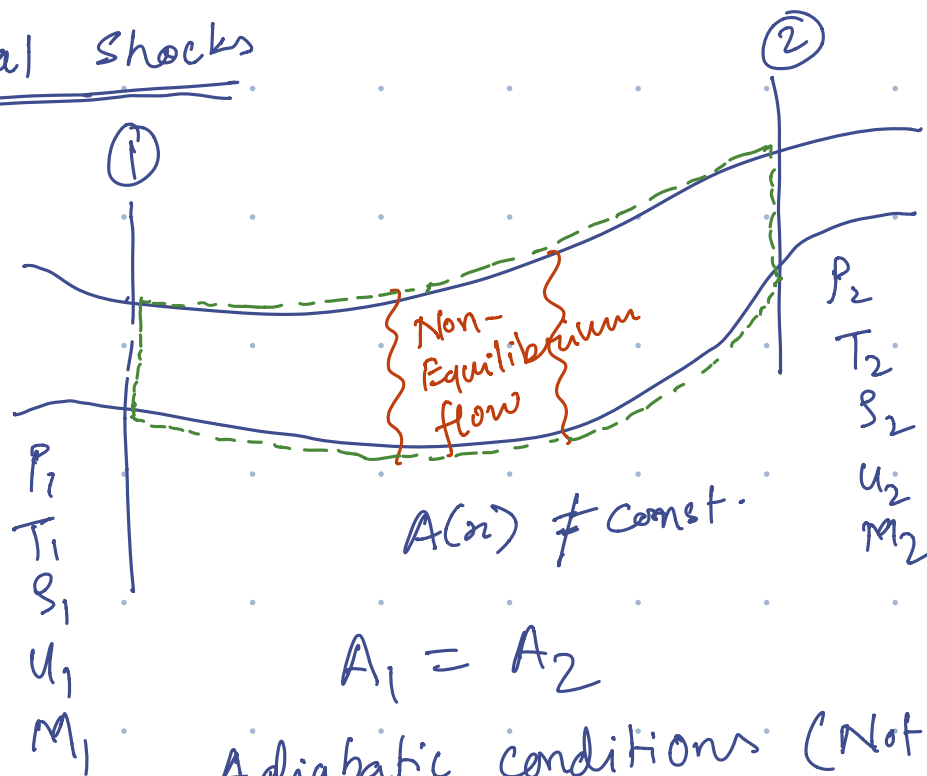 al Shocks
②
①
Non-
Equilibrium
flow
P₂
T₂
ρ₂
u₂
M₂
P₁
T₁
ρ₁
u₁
M₁
A(x) ≠ Const.
A₁ = A₂
Adiabatic conditions (Not